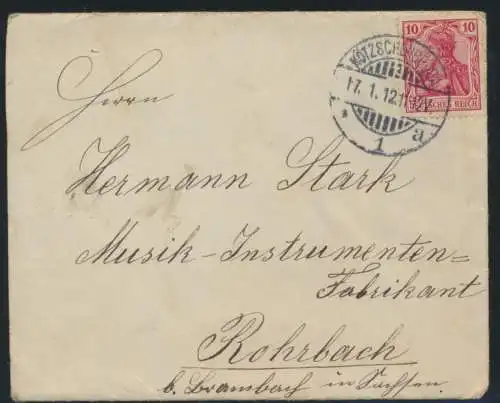 10 10
DEUTSCHES REICH
17. 1. 12. 11
* 1 a
Herrn
Hermann Stark
Musik-Instrumenten=
Fabrikant
Rohrbach
b. Brambach in Sachsen.